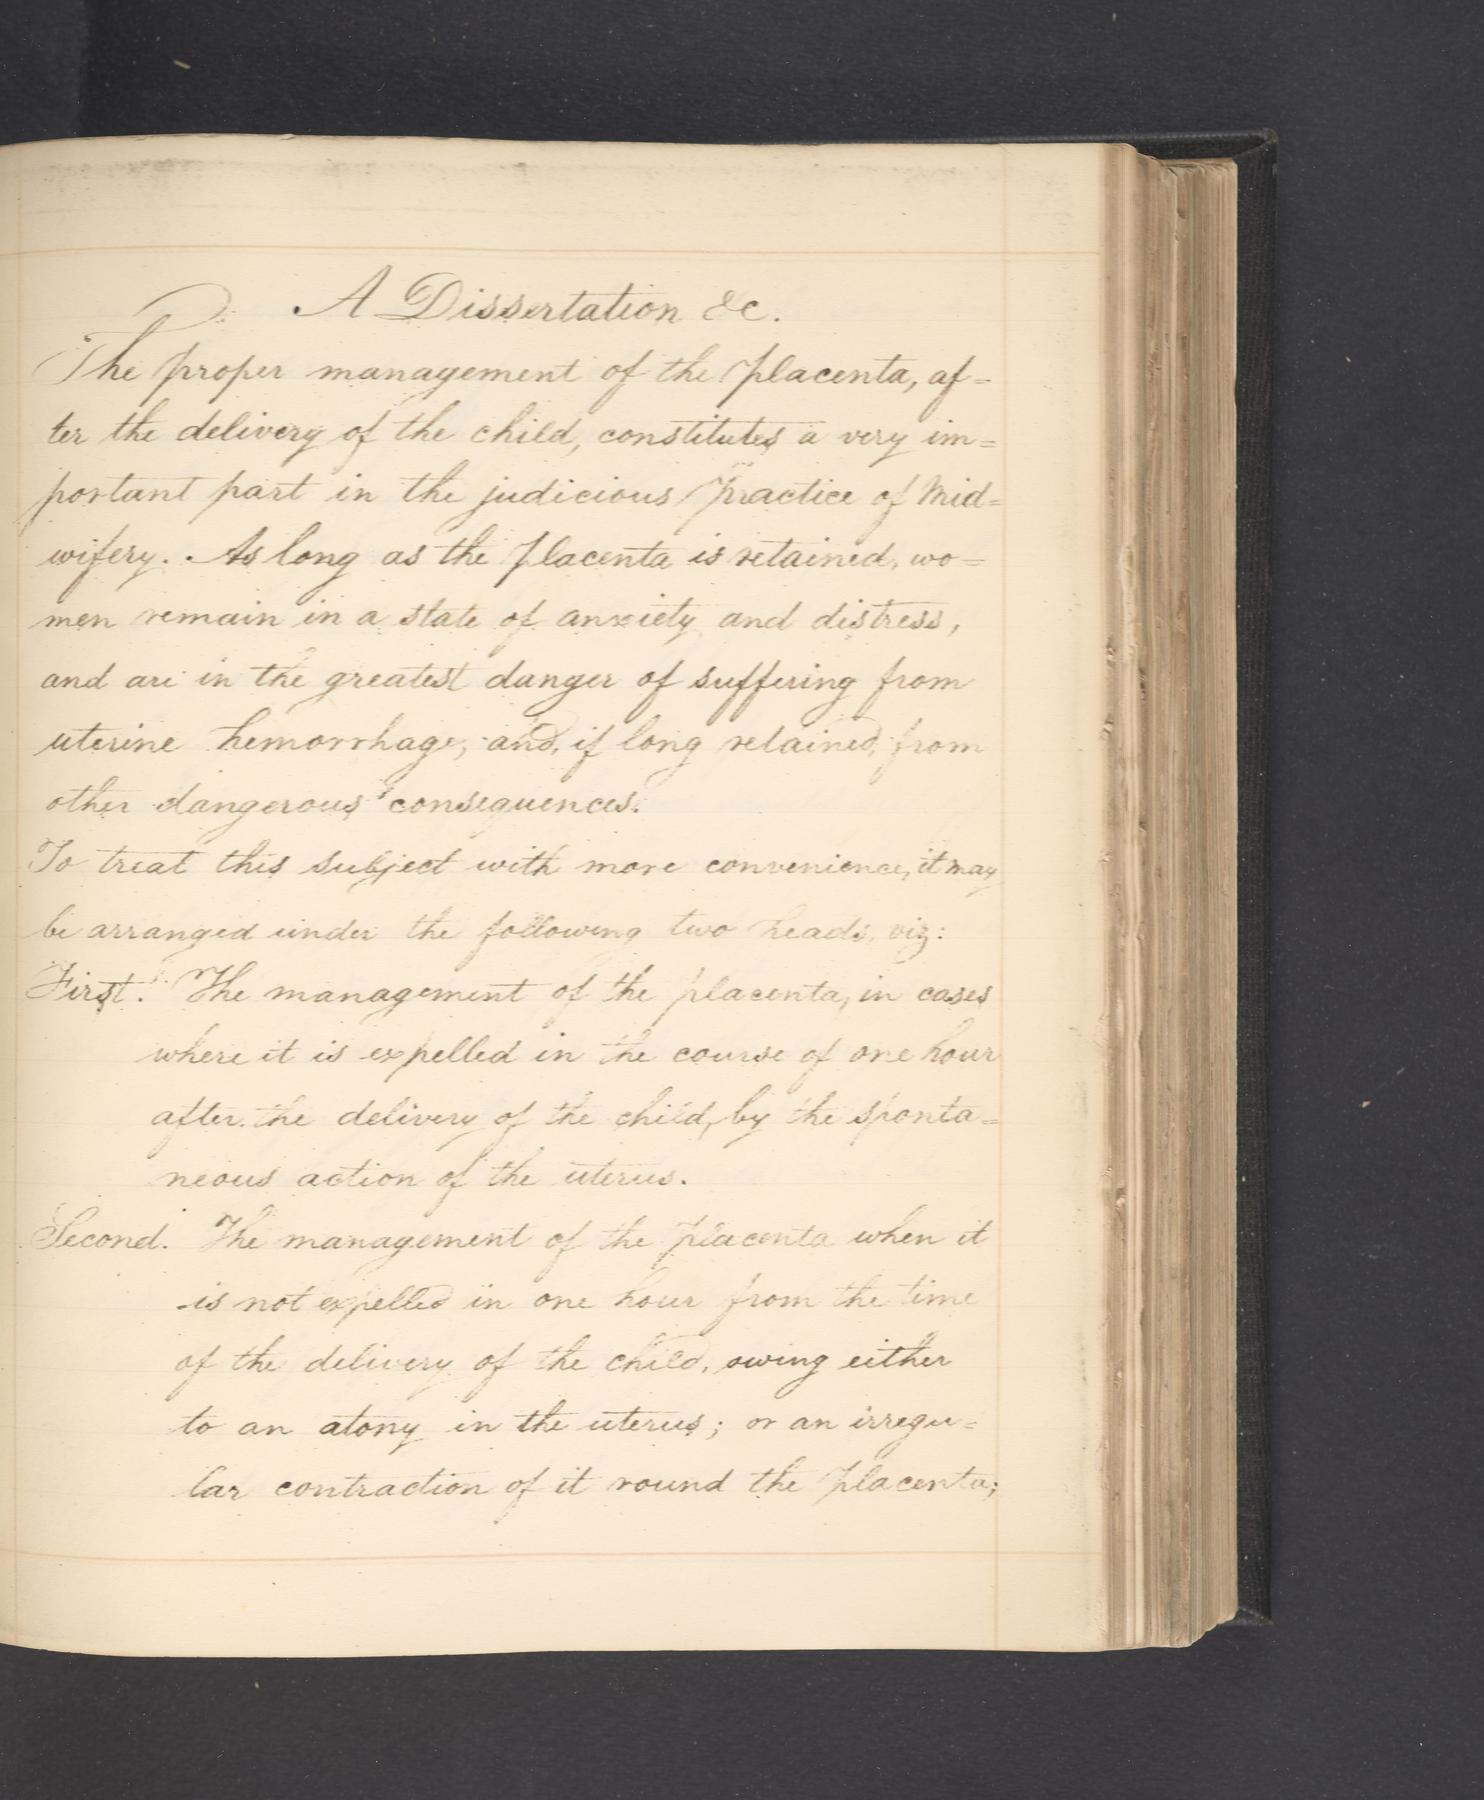 A Dissertation &c.
The proper management of the placenta, af=
ter the delivery of the child, constitutes a very im=
portant part in the judicious practice of Mid=
wifery. As long as the placenta is retained, wo=
men remain in a state of anxiety and distress,
and are in the greatest danger of suffering from
uterine hemorrhage, and, if long retained, from
other dangerous consequences.
To treat this subject with more convenience, it may
be arranged under the following two heads, viz:
First. The management of the placenta, in cases
where it is expelled in the course of one hour
after the delivery of the child, by the sponta=
neous action of the uterus.
Second. The management of the placenta when it
is not expelled in one hour from the time
of the delivery of the child, owing either
to an atony in the uterus; or an irregu=
lar contraction of it round the placenta;